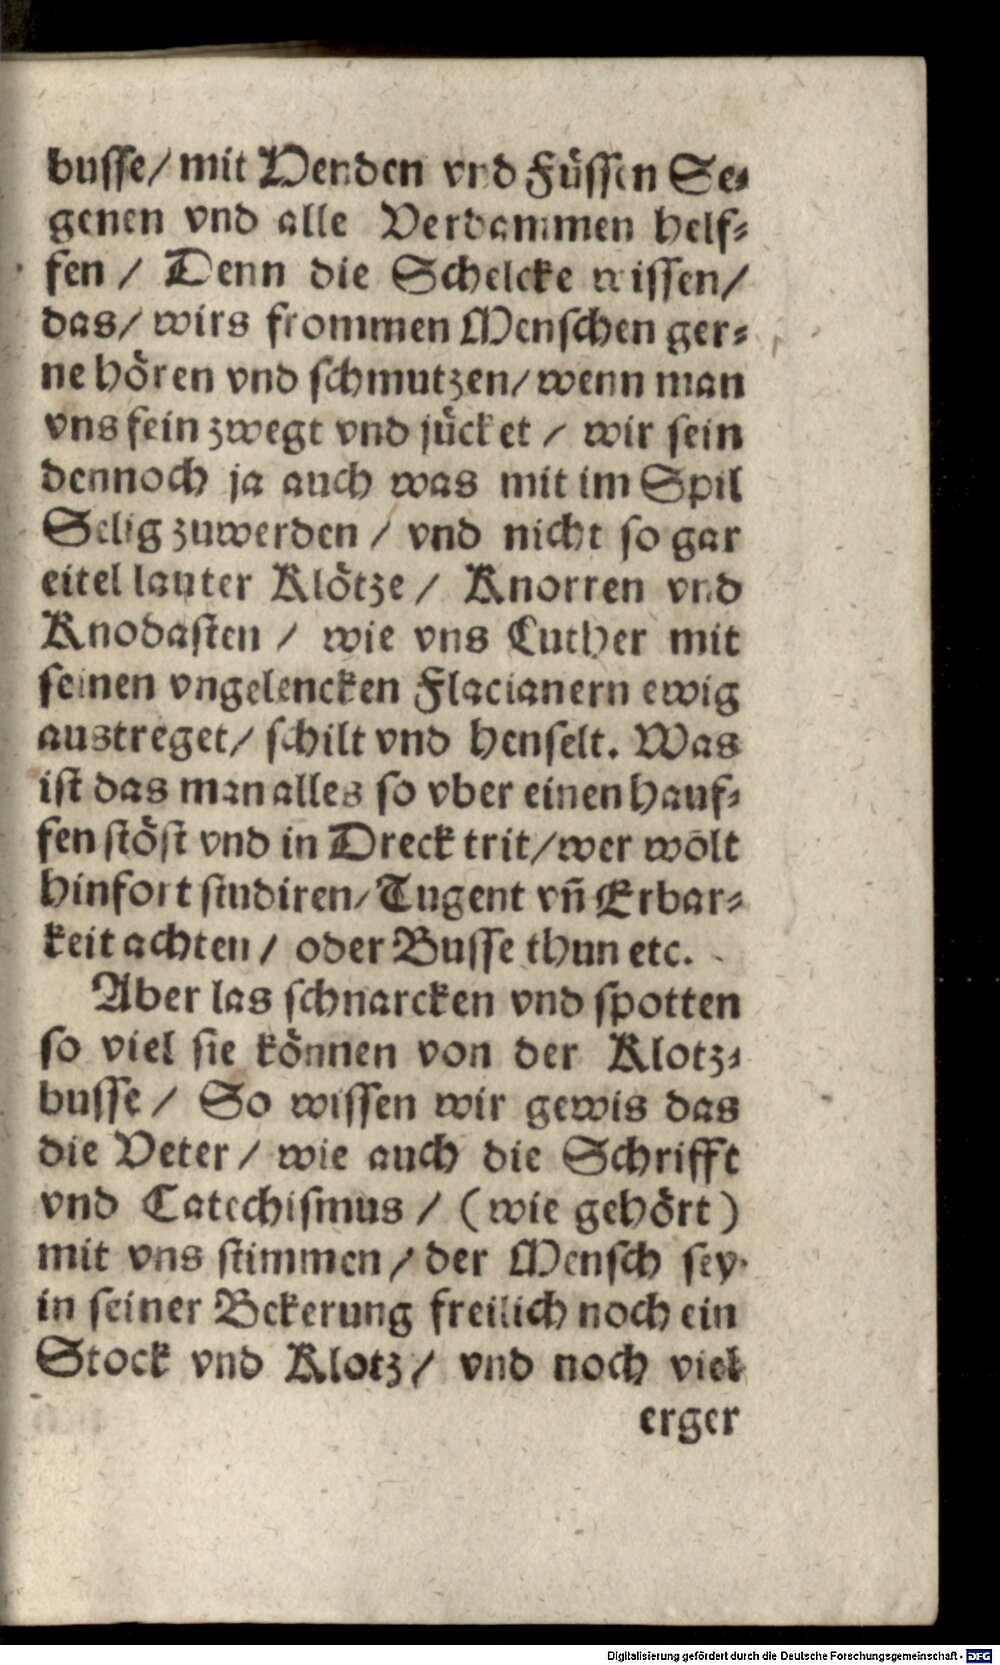 busse/ mit Henden vnd Füssen Se⸗
genen vnd alle Verdammen helf⸗
fen / Denn die Schelcke wissen/
das/ wirs frommen Menschen ger⸗
ne hören vnd schmutzen/ wenn man
vns fein zwegt vnd jücket / wir sein
dennoch ja auch was mit im Spil
Selig zuwerden / vnd nicht so gar
eitel lauter Klötze / Knorren vnd
Knodasten / wie vns Luther mit
seinen vngelencken Flacianern ewig
austreget/ schilt vnd henselt. Was
ist das man alles so vber einen hauf⸗
fen stöst vnd in Dreck trit/ wer wolt
hinfort studiren/ Tugent vñ Erbar⸗
keit achten / oder Busse thun etc.
Aber las schnarcken vnd spotten
so viel sie können von der Klotz⸗
busse / So wissen wir gewis das
die Veter / wie auch die Schrifft
vnd Catechismus / (wie gehört)
mit vns stimmen / der Mensch sey
in seiner Bekerung freilich noch ein
Stock vnd Klotz / vnd noch viel
erger
Digitalisierung gefördert durch die Deutsche Forschungsgemeinschaft - DFG